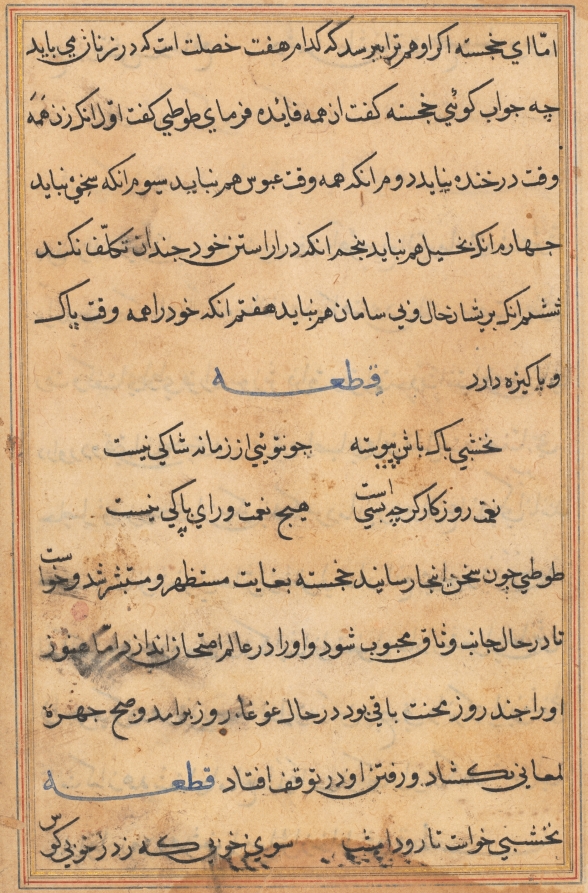 امّا ای خجسته اکر او هم ترا بپرسد که کدام هفت خصلت است که در زنان می باید
چه جواب کوئی خجسته کفت ان همه فایده فرمای طوطی کفت اوّل انکه زن همه
وقت در خنده نباید دوم انکه همه وقت عبوس هم نباید سیوم انکه سخی نباید
چهارم انکه بخیل هم نباید پنجم انکه در اراستن خود چندان تکلّف نکند
ششم انکه پریشان حال و بی سامان هم نباید هفتم انکه خود را همه وقت پاک
و پاکیزه دارد قطعه
نخشبی پاک باش پیوسته چو نتوئی از زمانه شاکی نیست
نعمت روزکار کرچه بسی است هیچ نعمت ورای پاکی نیست
طوطی چون سخن اینجا رسانید خجسته بغایت مستظهر و مستبشر شد و خواست
تا در حال جانب وثاق محبوب شود و او را در عالم امتحان اندازد امّا هنوز
او را چند روز محنت باقی بود در حال غوغاء روز برامد و صبح چهره
لمعانی بکشاد و رفتن او در توقف افتاد قطعه
نخشبی خواست تا رود امشب سوی خوبی که زد ز خوبی کوس